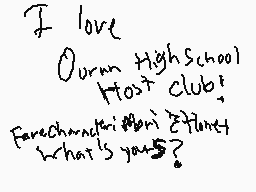 I love
Ouran High School
Host club!
Fave character: Mori & Honey
What's yours?